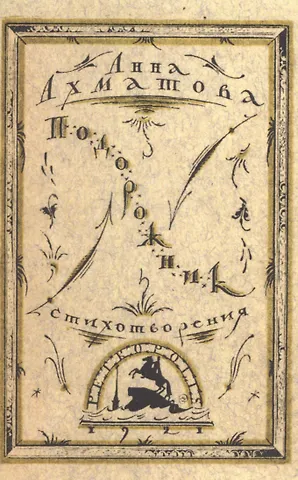 Анна
Ахматова
Подорожник
стихотворения
PETROPOLIS
1921